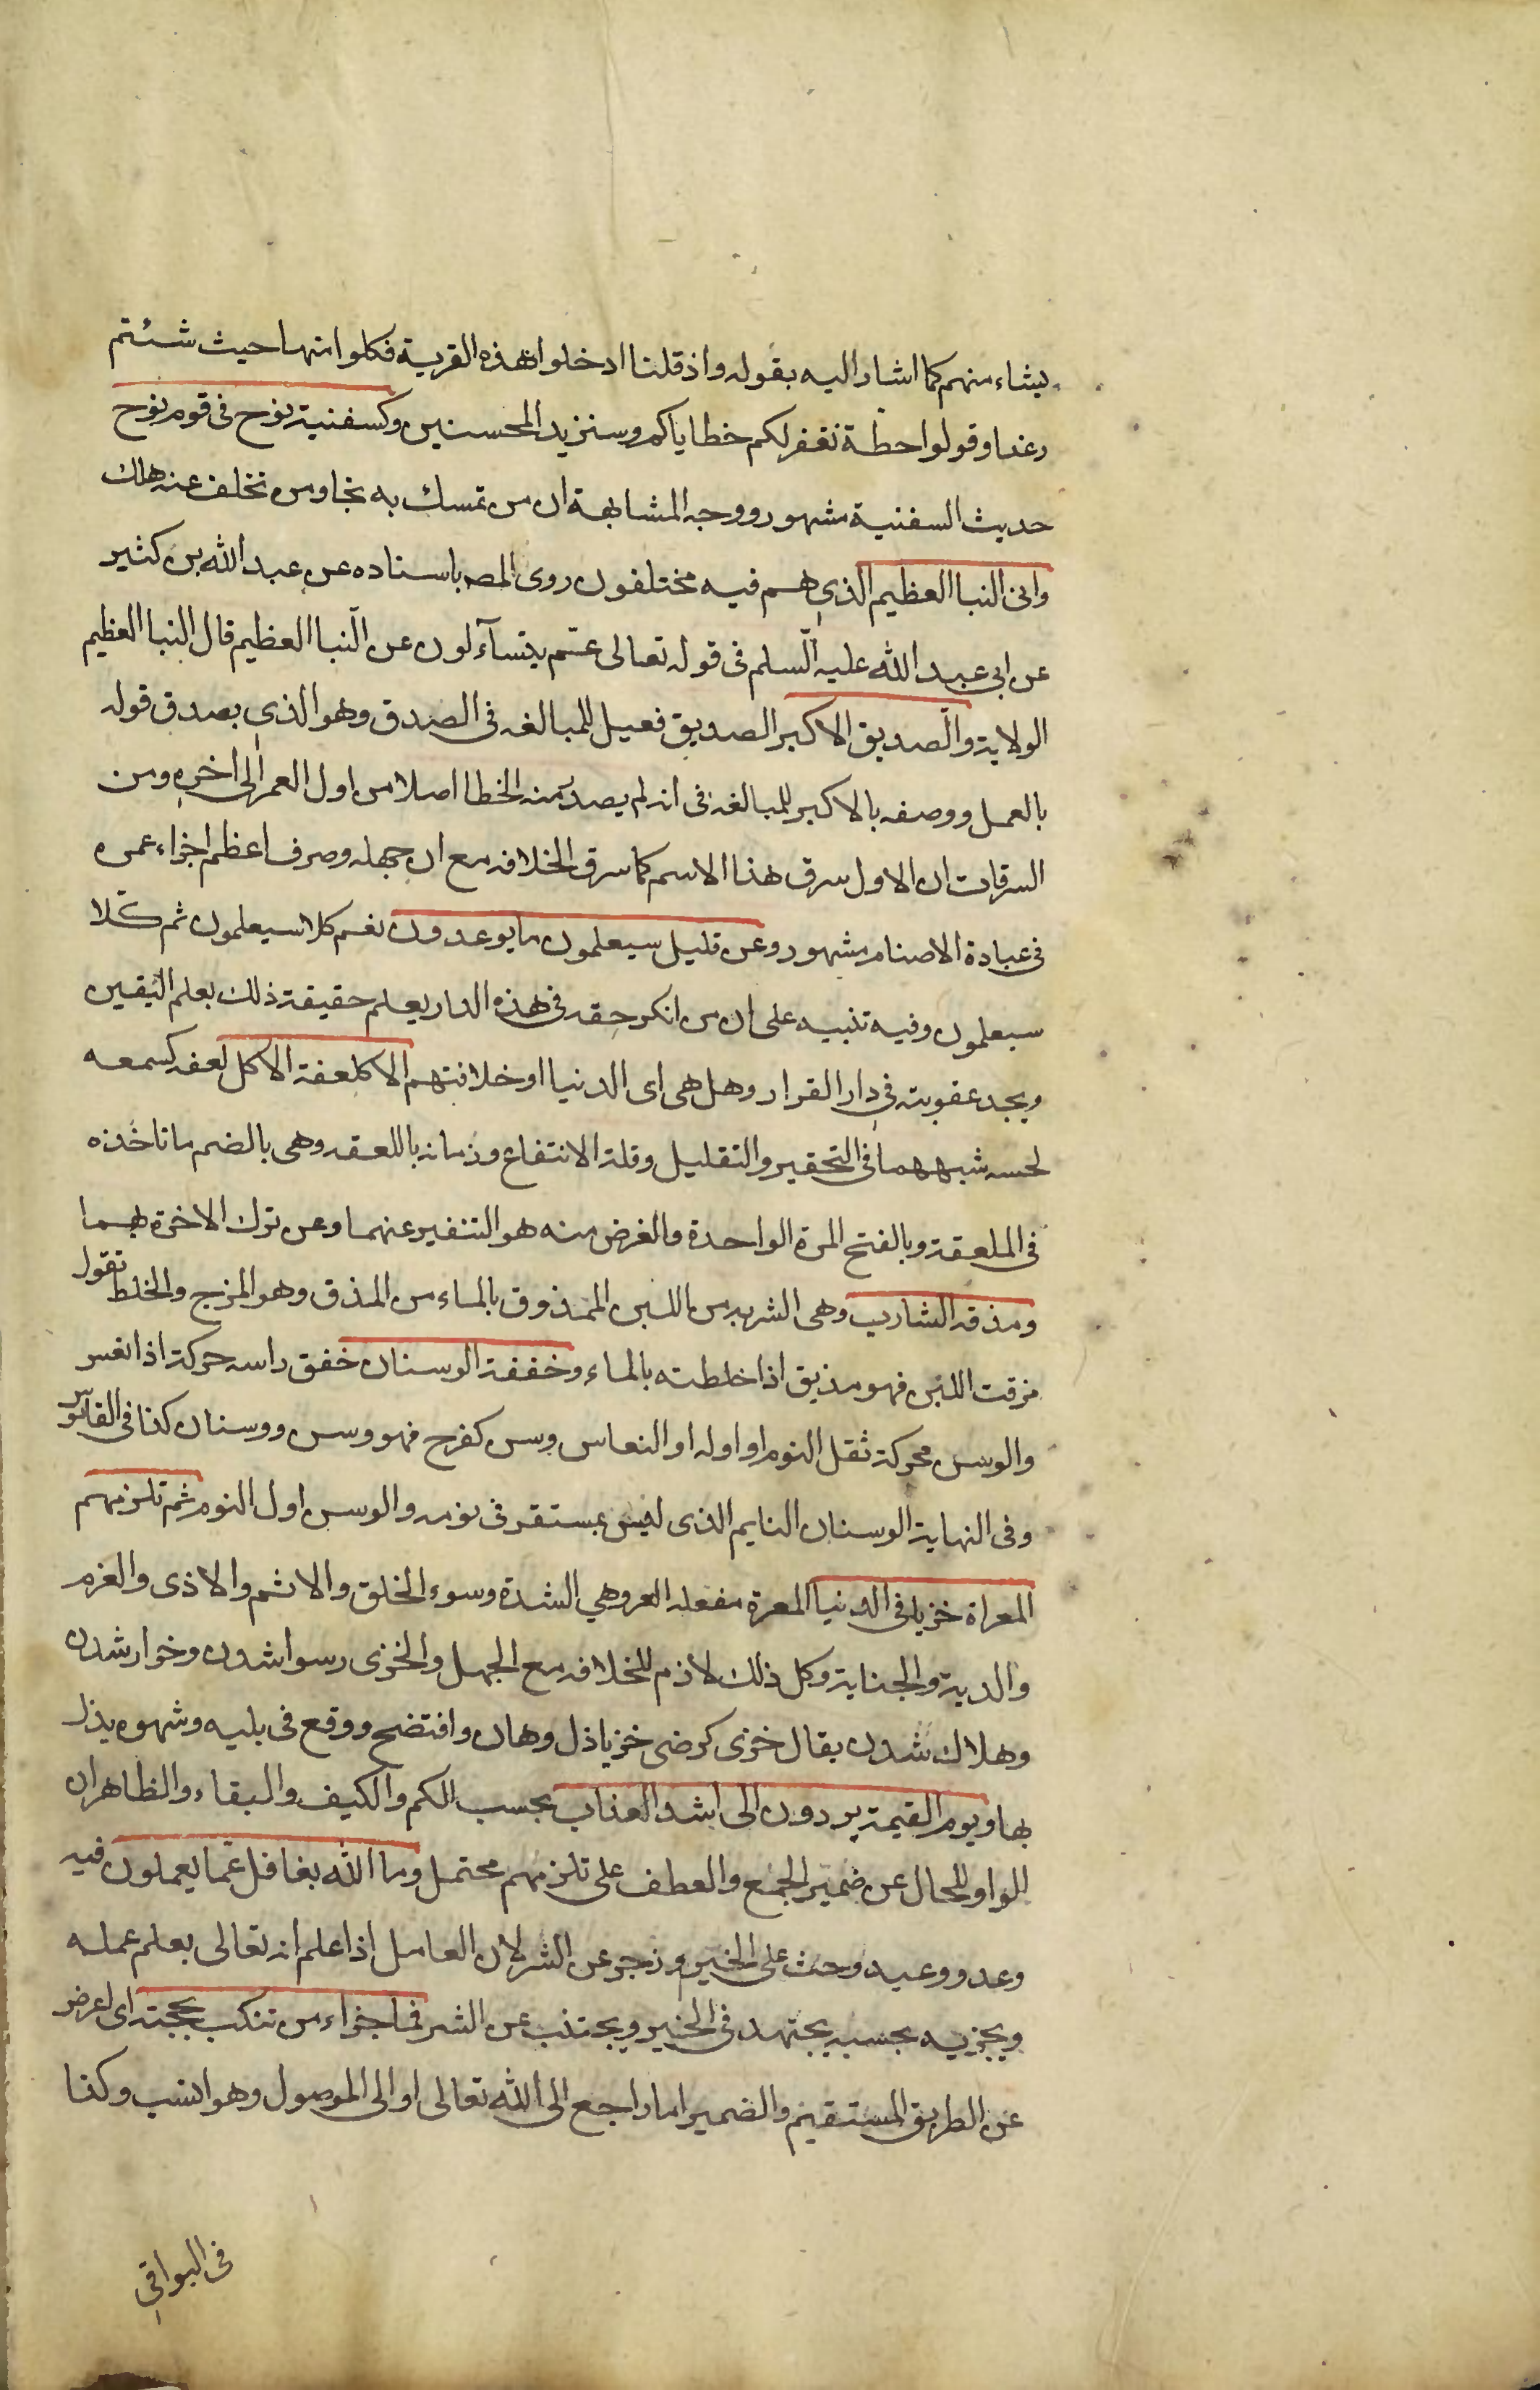 يشاء منهم كما اشار اليه بقوله واذ قلنا ادخلوا هذه القرية فكلوا منها حيث شئتم
رغدا وقولوا حطة نغفر لكم خطاياكم وسنزيد المحسنين وكسفنية نوح فى قوم نوح
حديث السفنية مشهور ووجه المشابهة ان من تمسك به نجا ومن تخلف عنه هلك
وانى النبا العظيم الذي هم فيه مختلفون روى المصه باسناده عن عبد الله بن كثير
عن ابى عبد الله عليه السلم فى قوله تعالى عم يتسآءلون عن النبا العظيم قال النبا العظيم
الولاية والصديق الاكبر الصديق فعيل للمبالغه فى الصدق وهو الذي يصدق قوله
بالعمل ووصفه بالاكبر للمبالغه فى انه لم يصدر منه الخطا اصلا من اول العمر الى اخره ومن
السرقات ان الاول سرق هذا الاسم كما سرق الخلافه مع ان جهله وصرف اعظم اجزاء عمره
فى عبادة الاصنام مشهور وعن قليل سيعلمون ما يوعدون نعم كلا سيعلمون ثم كلا
سيعلمون وفيه تنبيه على ان من انكر حقه فى هذه الدار يعلم حقيقة ذلك بعلم اليقين
ويجد عقوبته فى دار القرار وهل هى اى الدنيا او خلافتهم الا كلعقة الاكل لعقه كسمعه
لحسه شبههما فى التحقير والتقليل وقلة الانتفاع وزمانه باللعقه وهى بالضم ما تاخذه
فى الملعقة وبالفتح المرة الواحدة والغرض منه هو التنفير عنهما وعن ترك الاخرة بهما
ومذقه الشارب وهى الشربه من اللبن الممذوق بالماء من المذق وهو المزج والخلط تقول
مزقت اللبن فهو مذيق اذا خلطته بالماء وخفقة الوسنان خفق راسه حركة اذا نعس
والوسن محركة ثقل النوم او اوله او النعاس وسن كفرح فهو وسن ووسنان كذا فى القاموس
وفى النهاية الوسنان النايم الذى ليس بمستقر فى نومه والوسن اول النوم ثم تلزمهم
المعراة خزيا فى الدنيا المعرة مفعله العر وهي الشدة وسوء الخلق والاثم والاذى والغرم
والدية والجناية وكل ذلك لازم للخلافه مع الجهل والخزى رسوا شدن وخوار شدن
وهلاك شدن يقال خزى كرضى خزيا ذل وهان وافتضح ووقع فى بليه وشهره يذل
بها ويوم القيمة يردون الى اشد العذاب بحسب الكم والكيف والبقاء والظاهر ان
الواو للحال عن ضمير الجمع والعطف على تلزمهم محتمل وما الله بغافل عما يعملون فيه
وعد ووعيد وحث على الخير وزجر عن الشر لان العامل اذا علم انه تعالى يعلم عمله
ويجزيه بحسبه يجتهد فى الخير ويجتنب عن الشر فما جزاء من تنكب بحجته اى اعرض
عن الطريق المستقيم والضمير اما راجع الى الله تعالى او الى الموصول وهو انسب وكذا
فى البواقي